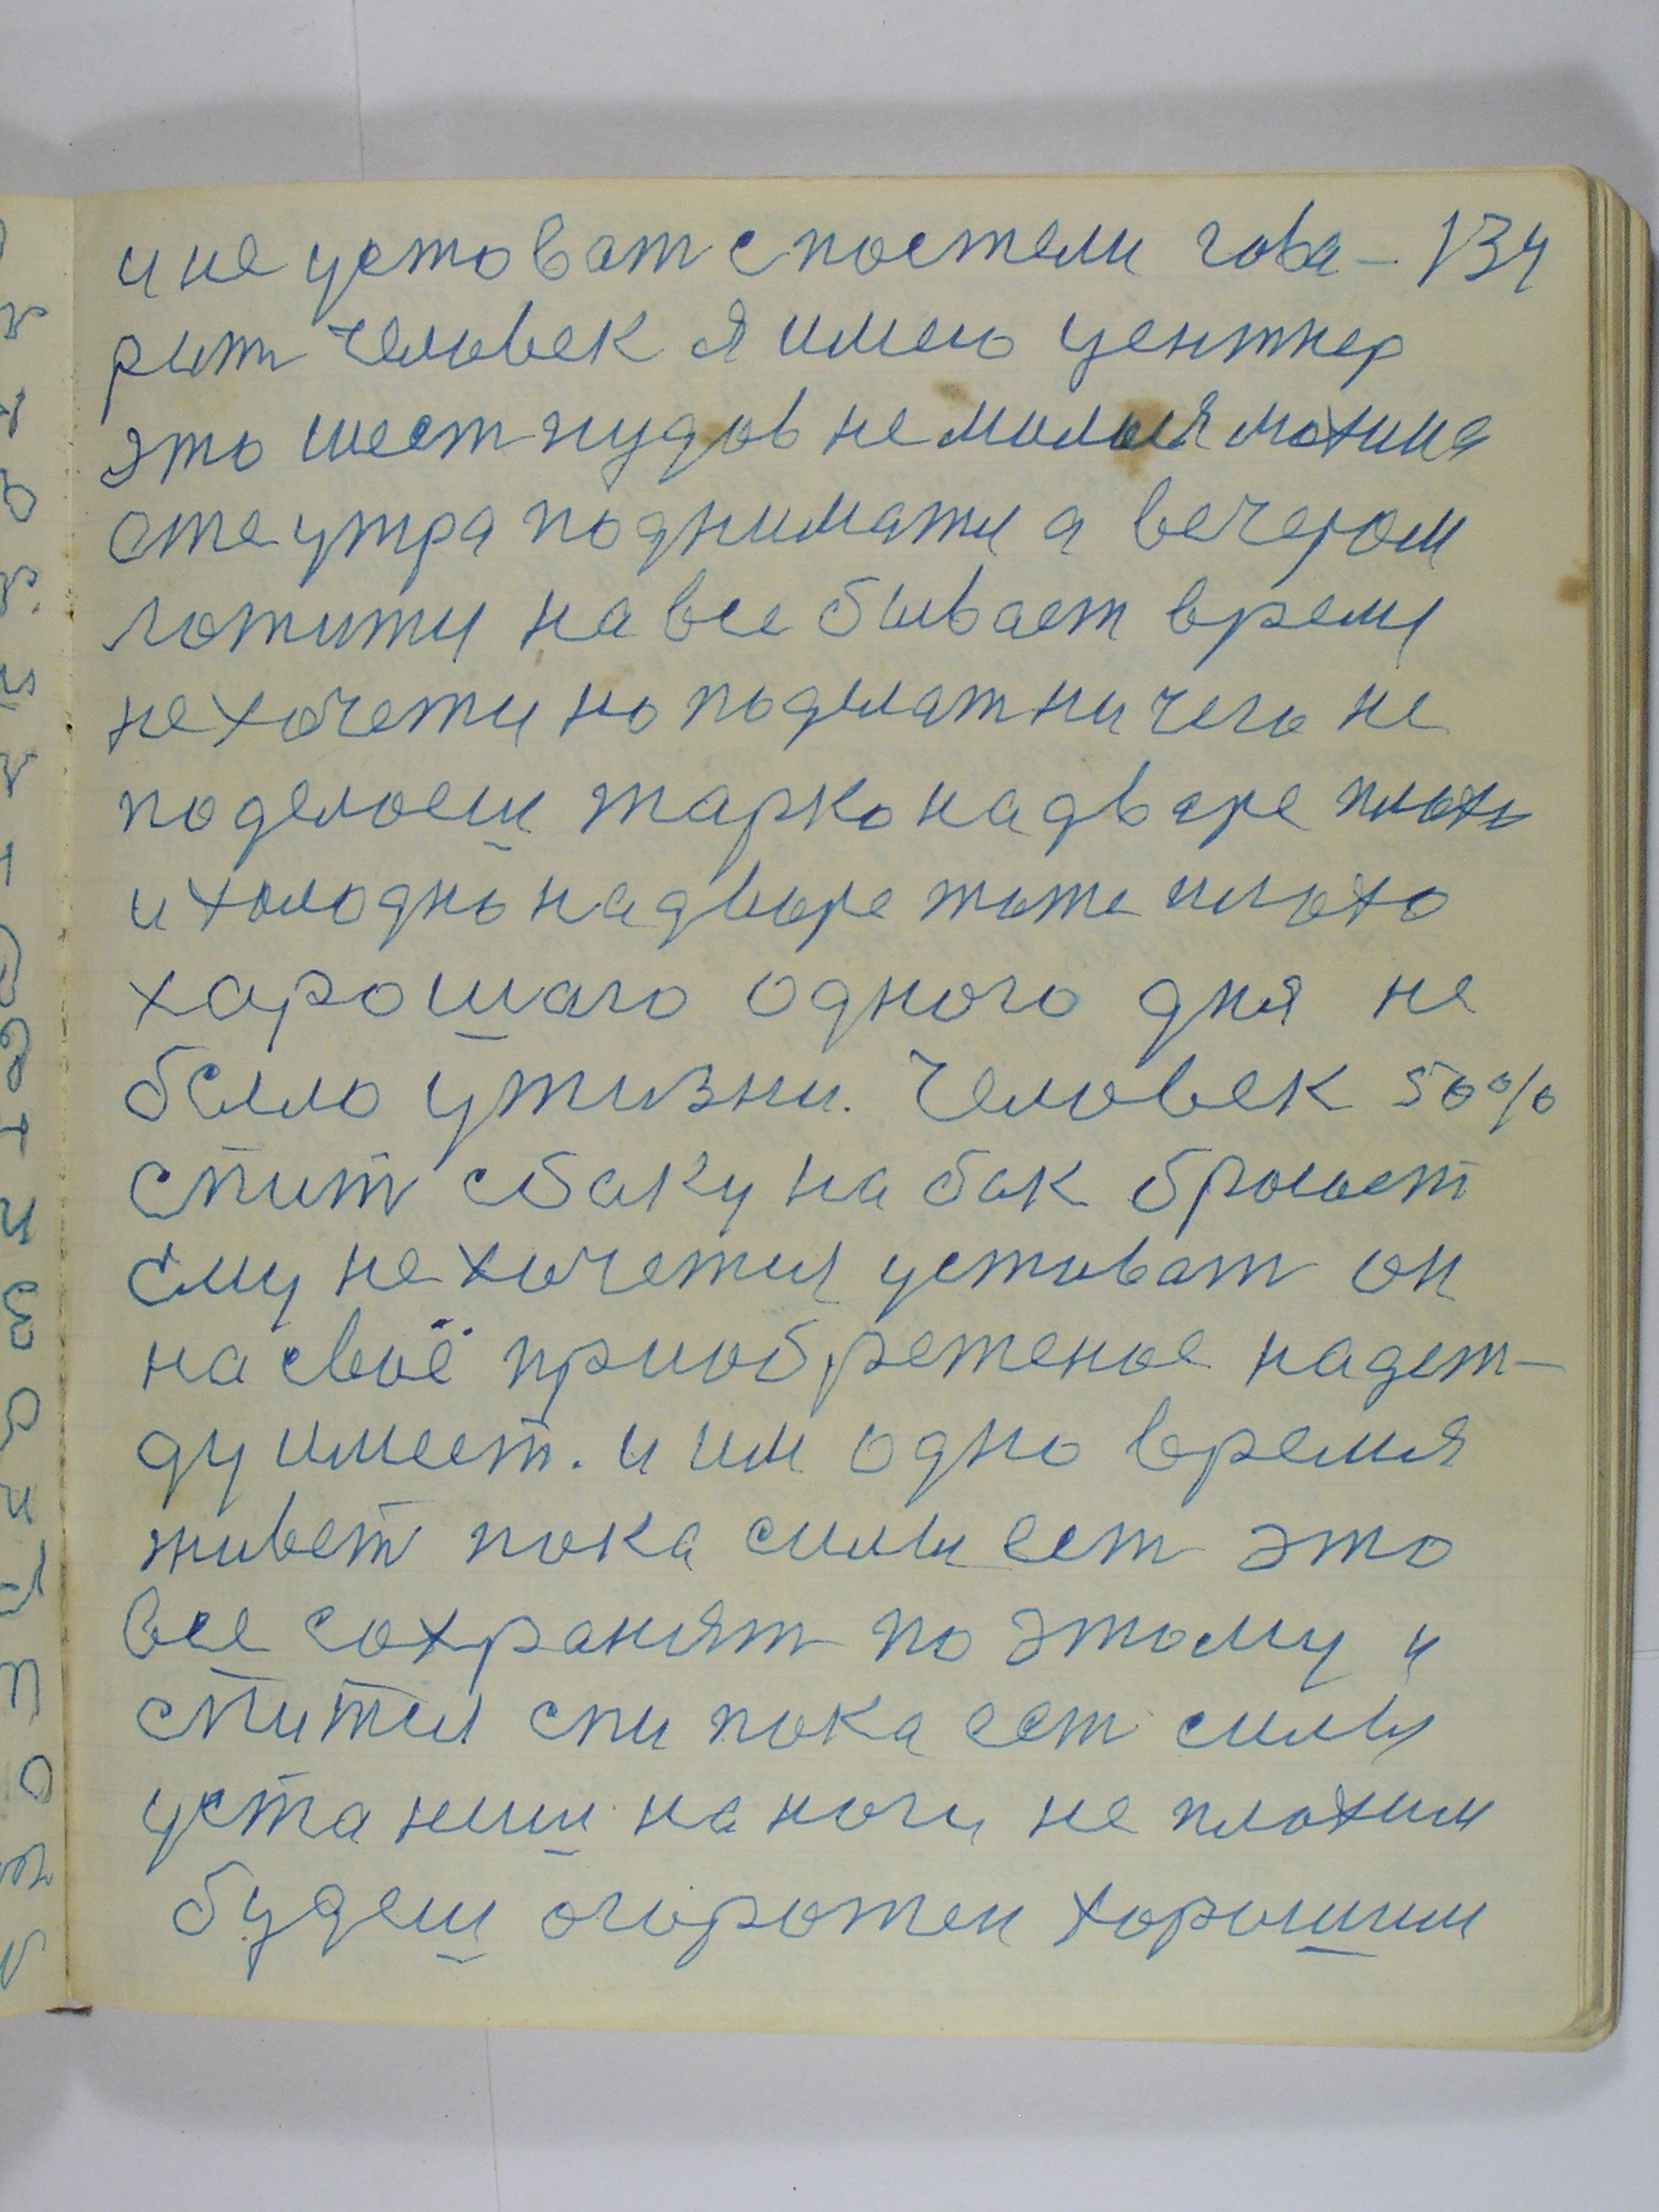 и не устоват с постели гова- 134
рит человек я имею центнер
это шест пудов не милыя махина
сте утра подниматя а вечером
ложитя на все бывает время
не хочетя но поделат ничего не
поделоеш жарко на дваре плохо
и холодно на дворе тоже плохо
харошаго одного дня не
было у жизни. Человек 50%
спит с баку на бак бросает
ему не хочетця устават он
на своё приобретеное надеж-
ду имеет. и им одно время
живет пока силы ест это
все сохранят по этому и
спится спи пока ест силы
устаниш на ноги не плохим
будеш огорожен хорошим